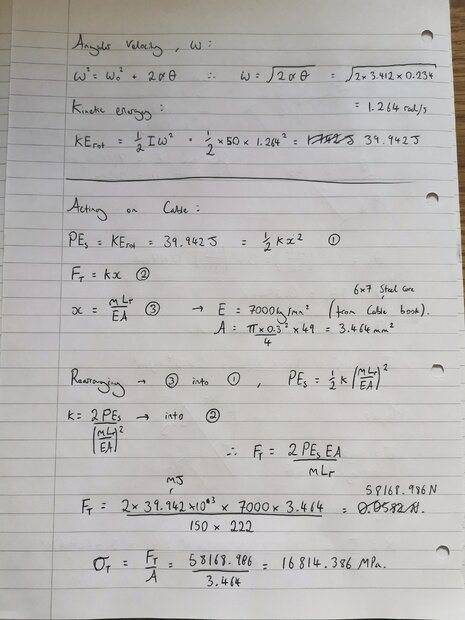 Angular Velocity, ω :
ω² = ω₀² + 2αθ ∴ ω = √(2αθ) = √(2 × 3.412 × 0.234)
= 1.264 rad/s
Kinetic energy :
KErot = 1/2 Iω² = 1/2 × 50 × 1.264² = 39.942 J
Acting on Cable :
PEs = KErot = 39.942 J = 1/2 kx² ①
FT = kx ②
6x7 Steel Core
x = mLr/EA ③ → E = 7000 kg/mm² (from Cable book).
A = π × 0.3²/4 × 49 = 3.464 mm²
Rearranging → ③ into ①, PEs = 1/2 k (mLr/EA)²
k = 2PEs/(mLr/EA)² → into ②
∴ FT = 2 PEs EA/mLr
mJ
58168.986 N
FT = 2 × 39.942 ×10⁺³ × 7000 × 3.464/150 × 222 = 0.0582 N.
σT = FT/A = 58168.986/3.464 = 16814.386 MPa.